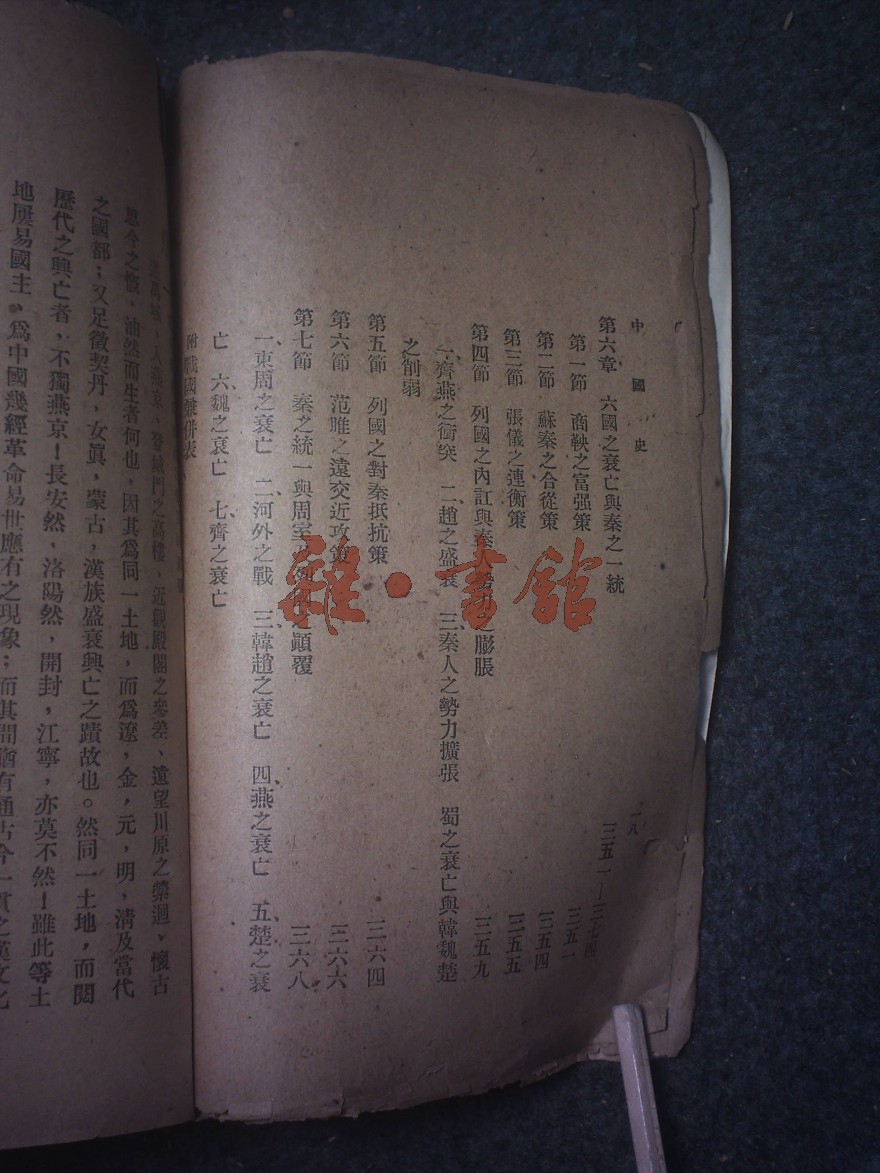 中國史 一八
第六章 六國之衰亡與秦之一統 三五一—三七四
第一節 商鞅之富强策 三五一
第二節 蘇秦之合從策 三五四
第三節 張儀之連衡策 三五五
第四節 列國之內訌與秦人勢力之膨脹 三五九
一、齊燕之衝突 二、趙之盛衰 三、秦人之勢力擴張 蜀之衰亡與韓魏楚
之削弱
第五節 列國之對秦抵抗策 三六四
第六節 范雎之遠交近攻策 三六六
第七節 秦之統一與周室及列國之顚覆 三六八
一、東周之衰亡 二、河外之戰 三、韓趙之衰亡 四、燕之衰亡 五、楚之衰
亡 六、魏之衰亡 七、齊之衰亡
附 戰國離併表
雜·書館
入燕京、登城門之高樓，近觀殿閣之參差、遠望川原之縈迴，懷古
思今之慨，油然而生者何也，因其爲同一土地，而爲遼，金，元，明，淸及當代
之國都；又足徵契丹，女眞，蒙古，漢族盛衰興亡之蹟故也。然同一土地，而閱
歷代之興亡者，不獨燕京！長安然，洛陽然，開封，江寧，亦莫不然！雖此等土
地屢易國主，爲中國幾經革命易世應有之現象；而其間猶有通古今一貫之漢文化